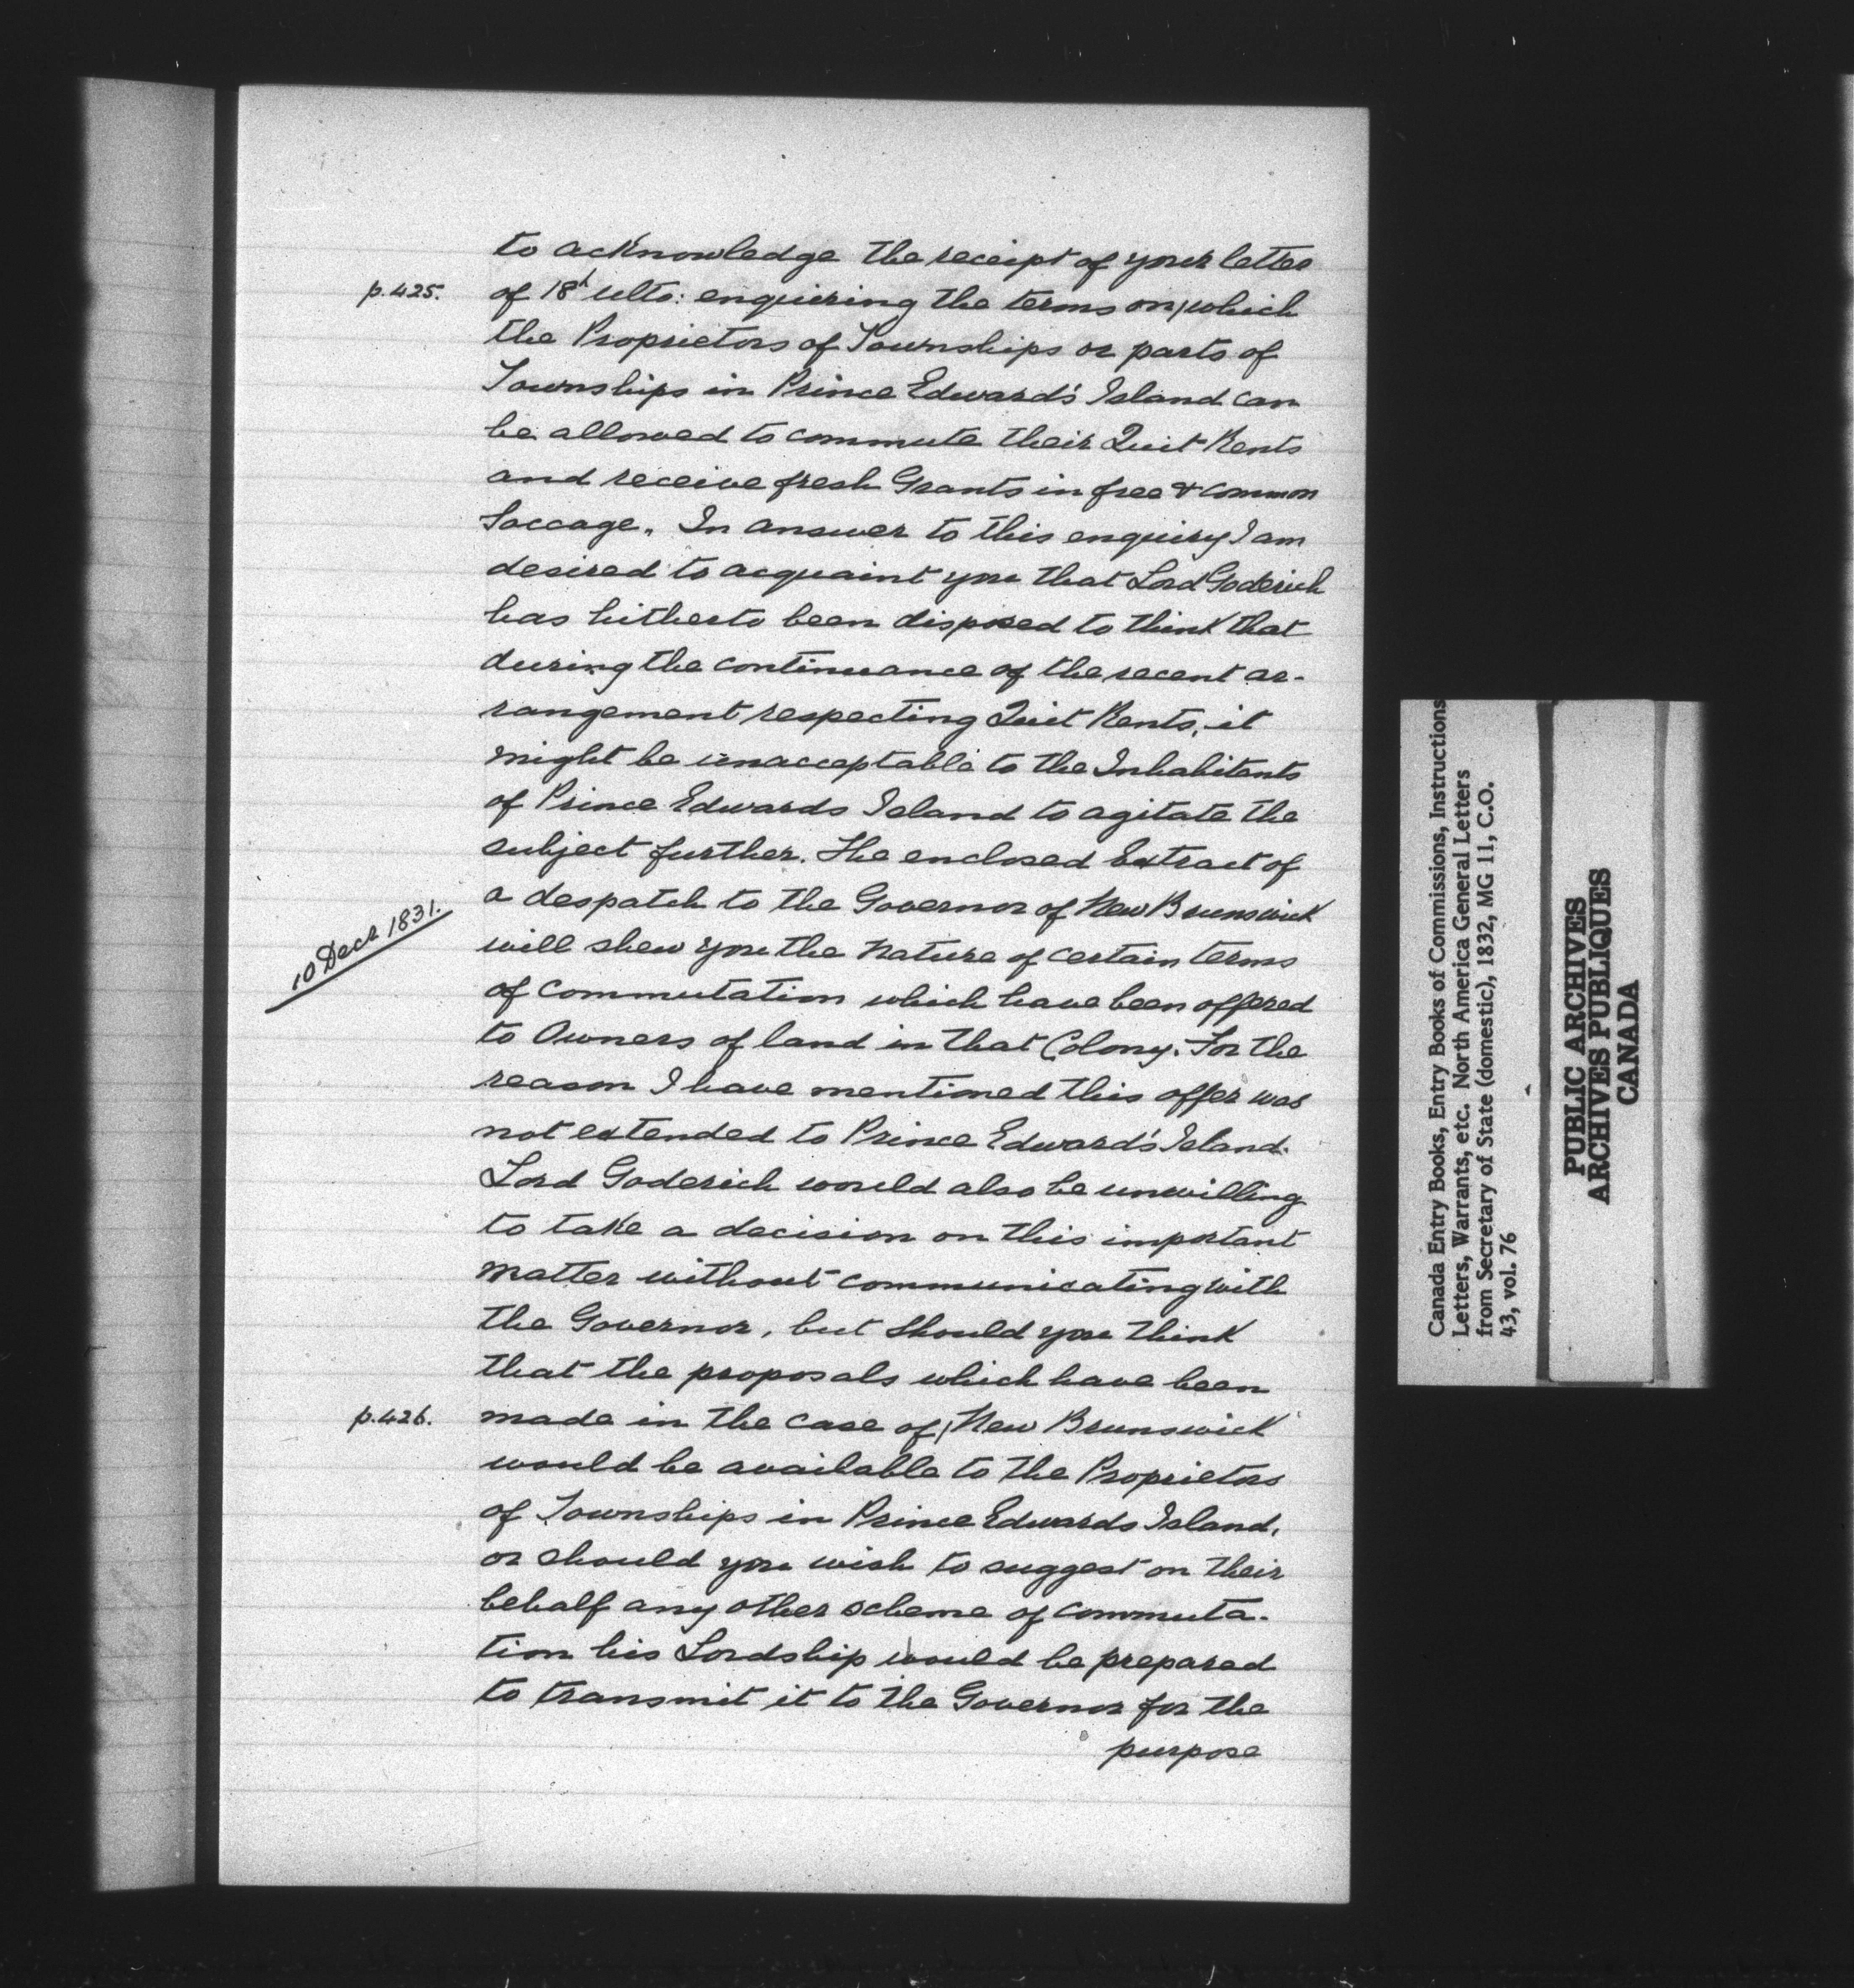 to acknowledge the receipt of your letter
p.425. of 18th ulto: enquiring the terms on/which
the Proprietors of Townships or parts of
Townships in Prince Edward's Island can
be allowed to commute their Quit Rents
and receive fresh Grants in free & common
Soccage. In answer to this enquiry I am
desired to acquaint you that Lord Goderich
has hitherto been disposed to think that
during the continuance of the recent ar-
rangement respecting Quit Rents, it
might be unacceptable to the Inhabitants
of Prince Edwards Island to agitate the
subject further. The enclosed Extract of
10 Decr 1831. a despatch to the Governor of New Brunswick
will shew you the nature of certain terms
of commutation which have been offered
to Owners of land in that Colony. For the
reason I have mentioned this offer was
not extended to Prince Edward's Island.
Lord Goderich would also be unwilling
to take a decision on this important
matter without communicating with
the Governor, but should you think
that the proposals which have been
p.426. made in the case of/New Brunswick
would be available to the Proprietors
of Townships in Prince Edwards Island,
or should you wish to suggest on their
behalf any other scheme of commuta-
tion his Lordship would be prepared
to transmit it to the Governor for the
purpose
Canada Entry Books, Entry Books of Commissions, Instructions
Letters, Warrants, etc. North America General Letters
from Secretary of State (domestic), 1832, MG 11, C.O.
43, vol. 76
PUBLIC ARCHIVES
ARCHIVES PUBLIQUES
CANADA